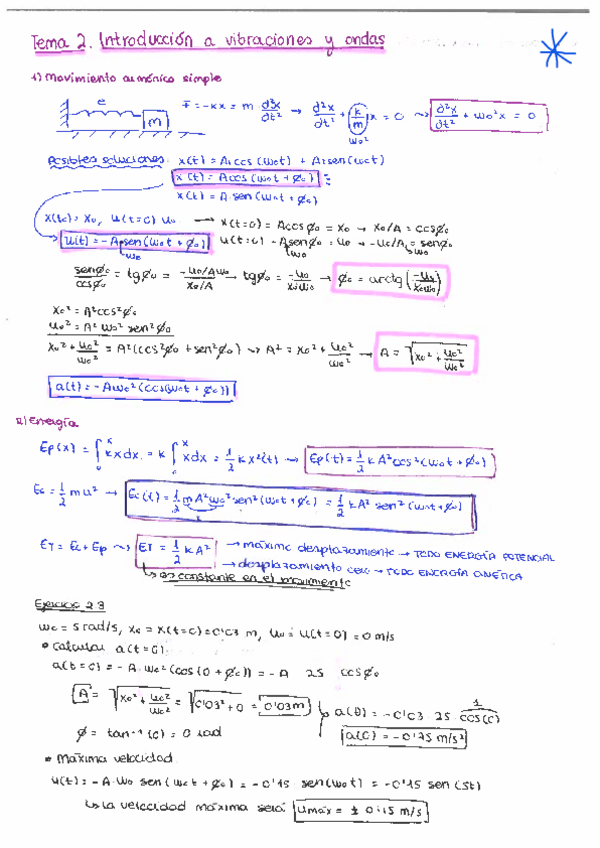 Tema 2. Introducción a vibraciones y ondas
1) Movimiento armónico simple
e
m
F = -kx = m d²x/dt² → d²x/dt² + (k/m)x = 0 ⇝ d²x/dt² + ω₀²x = 0
ω₀²
Posibles soluciones: x(t) = A₁cos(ω₀t) + A₂sen(ω₀t)
x(t) = A cos(ω₀t + φ₀)
x(t) = A sen(ω₀t + φ₀)
x(t₀) = x₀, u(t=0) u₀ → x(t=0) = A cosφ₀ = x₀ → x₀/A = cosφ₀
u(t) = -A sen(ω₀t + φ₀) u(t=0) - A senφ₀ = u₀ → -u₀/A = senφ₀
ω₀ ω₀ ω₀
senφ₀/cosφ₀ = tgφ₀ = (-u₀/Aω₀)/(x₀/A) → tgφ₀ = -u₀/x₀ω₀ → φ₀ = arctg(-u₀/x₀ω₀)
x₀² = A²cos²φ₀
u₀² = A²ω₀²sen²φ₀
x₀² + u₀²/ω₀² = A²(cos²φ₀ + sen²φ₀) ⇝ A² = x₀² + u₀²/ω₀² → A = √(x₀² + u₀²/ω₀²)
a(t) = -Aω₀²(cos(ω₀t + φ₀))
2) Energía
Ep(x) = ∫₀ˣ kx dx = k ∫₀ˣ x dx = 1/2 k x²(t) → Ep(t) = 1/2 k A² cos²(ω₀t + φ₀)
Ec = 1/2 m u² → Ec(t) = 1/2 m A²ω₀² sen²(ω₀t + φ₀) = 1/2 kA² sen²(ω₀t + φ₀)
ET = Ec + Ep ⇝ ET = 1/2 k A² → máximo desplazamiento → TODO ENERGÍA POTENCIAL
→ desplazamiento cero → TODO ENERGÍA CINÉTICA
↳ es constante en el movimiento
Ejercicio 2.3
ω₀ = 5 rad/s, x₀ = x(t=0) = 0'03 m, u₀ = u(t=0) = 0 m/s
• calcular a(t=0).
a(t=0) = -A · ω₀²(cos(0 + φ₀)) = -A 25 cosφ₀
A = √(x₀² + u₀²/ω₀²) = √(0'03² + 0) = 0'03m ↳ a(0) = -0'03 · 25 · cos(0)
1
φ = tan⁻¹(0) = 0 rad a(0) = -0'75 m/s²
• Máxima velocidad.
u(t) = -A · ω₀ sen(ω₀t + φ₀) = -0'15 sen(ω₀t) = -0'15 sen(5t)
↳ la velocidad máxima será: umáx = ± 0'15 m/s